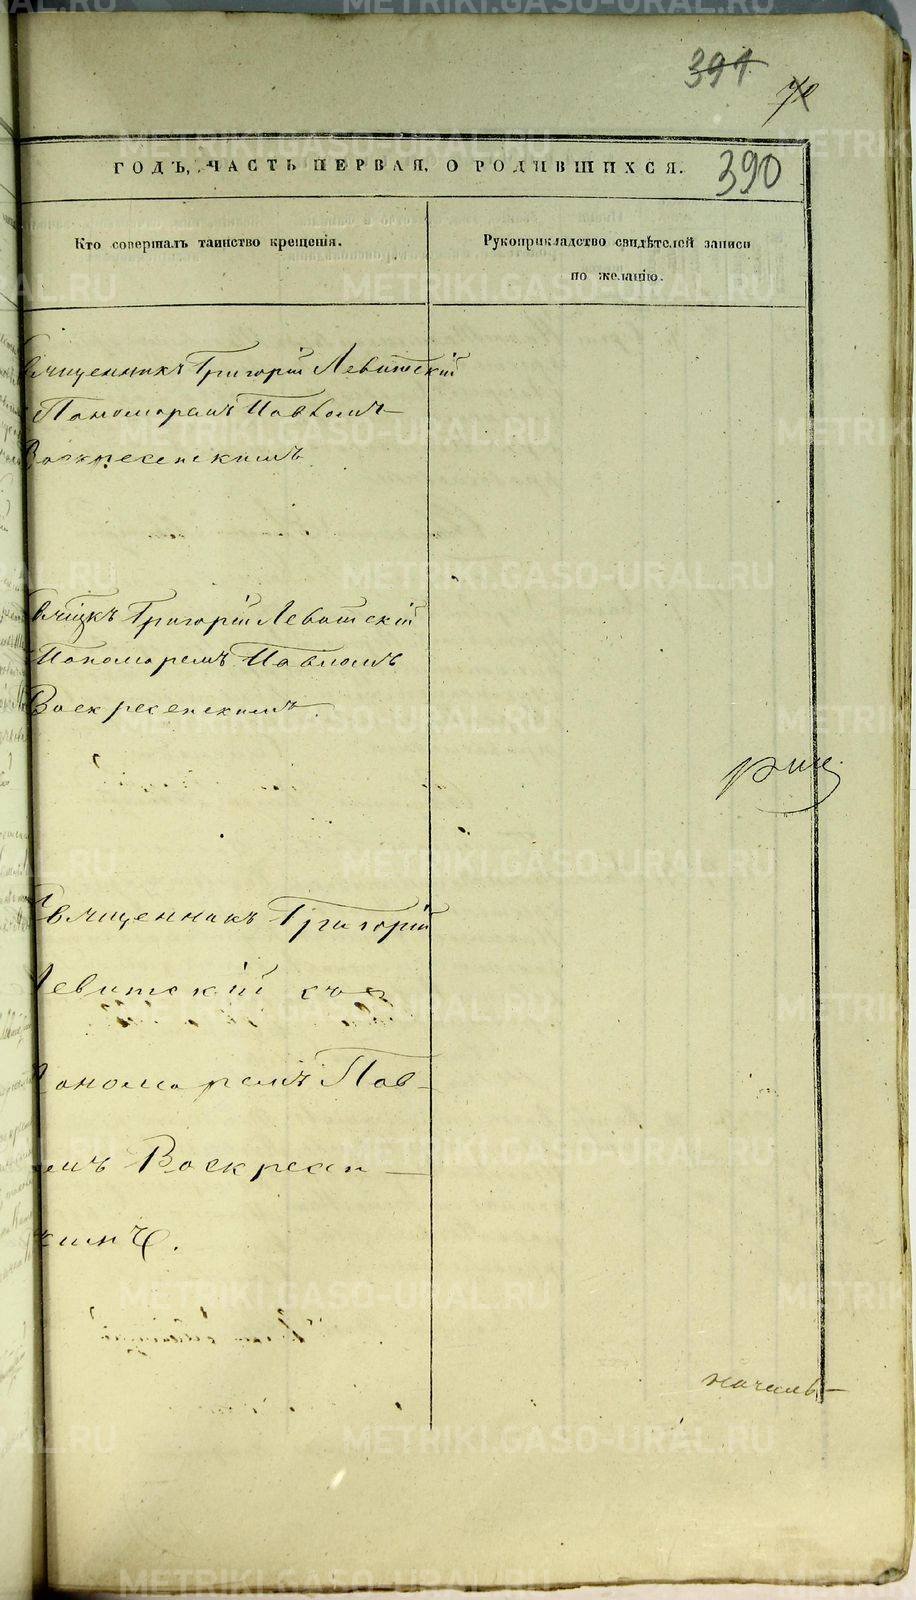 391
70
ГОДЪ, ЧАСТЬ ПЕРВАЯ, О РОДИВШИХСЯ.
390
Кто совершалъ таинство крещенія.
Рукоприкладство свидѣтелей записи
по желанію.
Священникъ Григорій Левитскій
Пономаремъ Павломъ
Воскресенскимъ
Свщнкъ Григорій Левитскій
Пономаремъ Павломъ
Воскресенскимъ
Священникъ Григорій
Левитскій съ
Пономаремъ Пав-
ломъ Воскресен-
скимъ.
METRIKI.GASO-URAL.RU